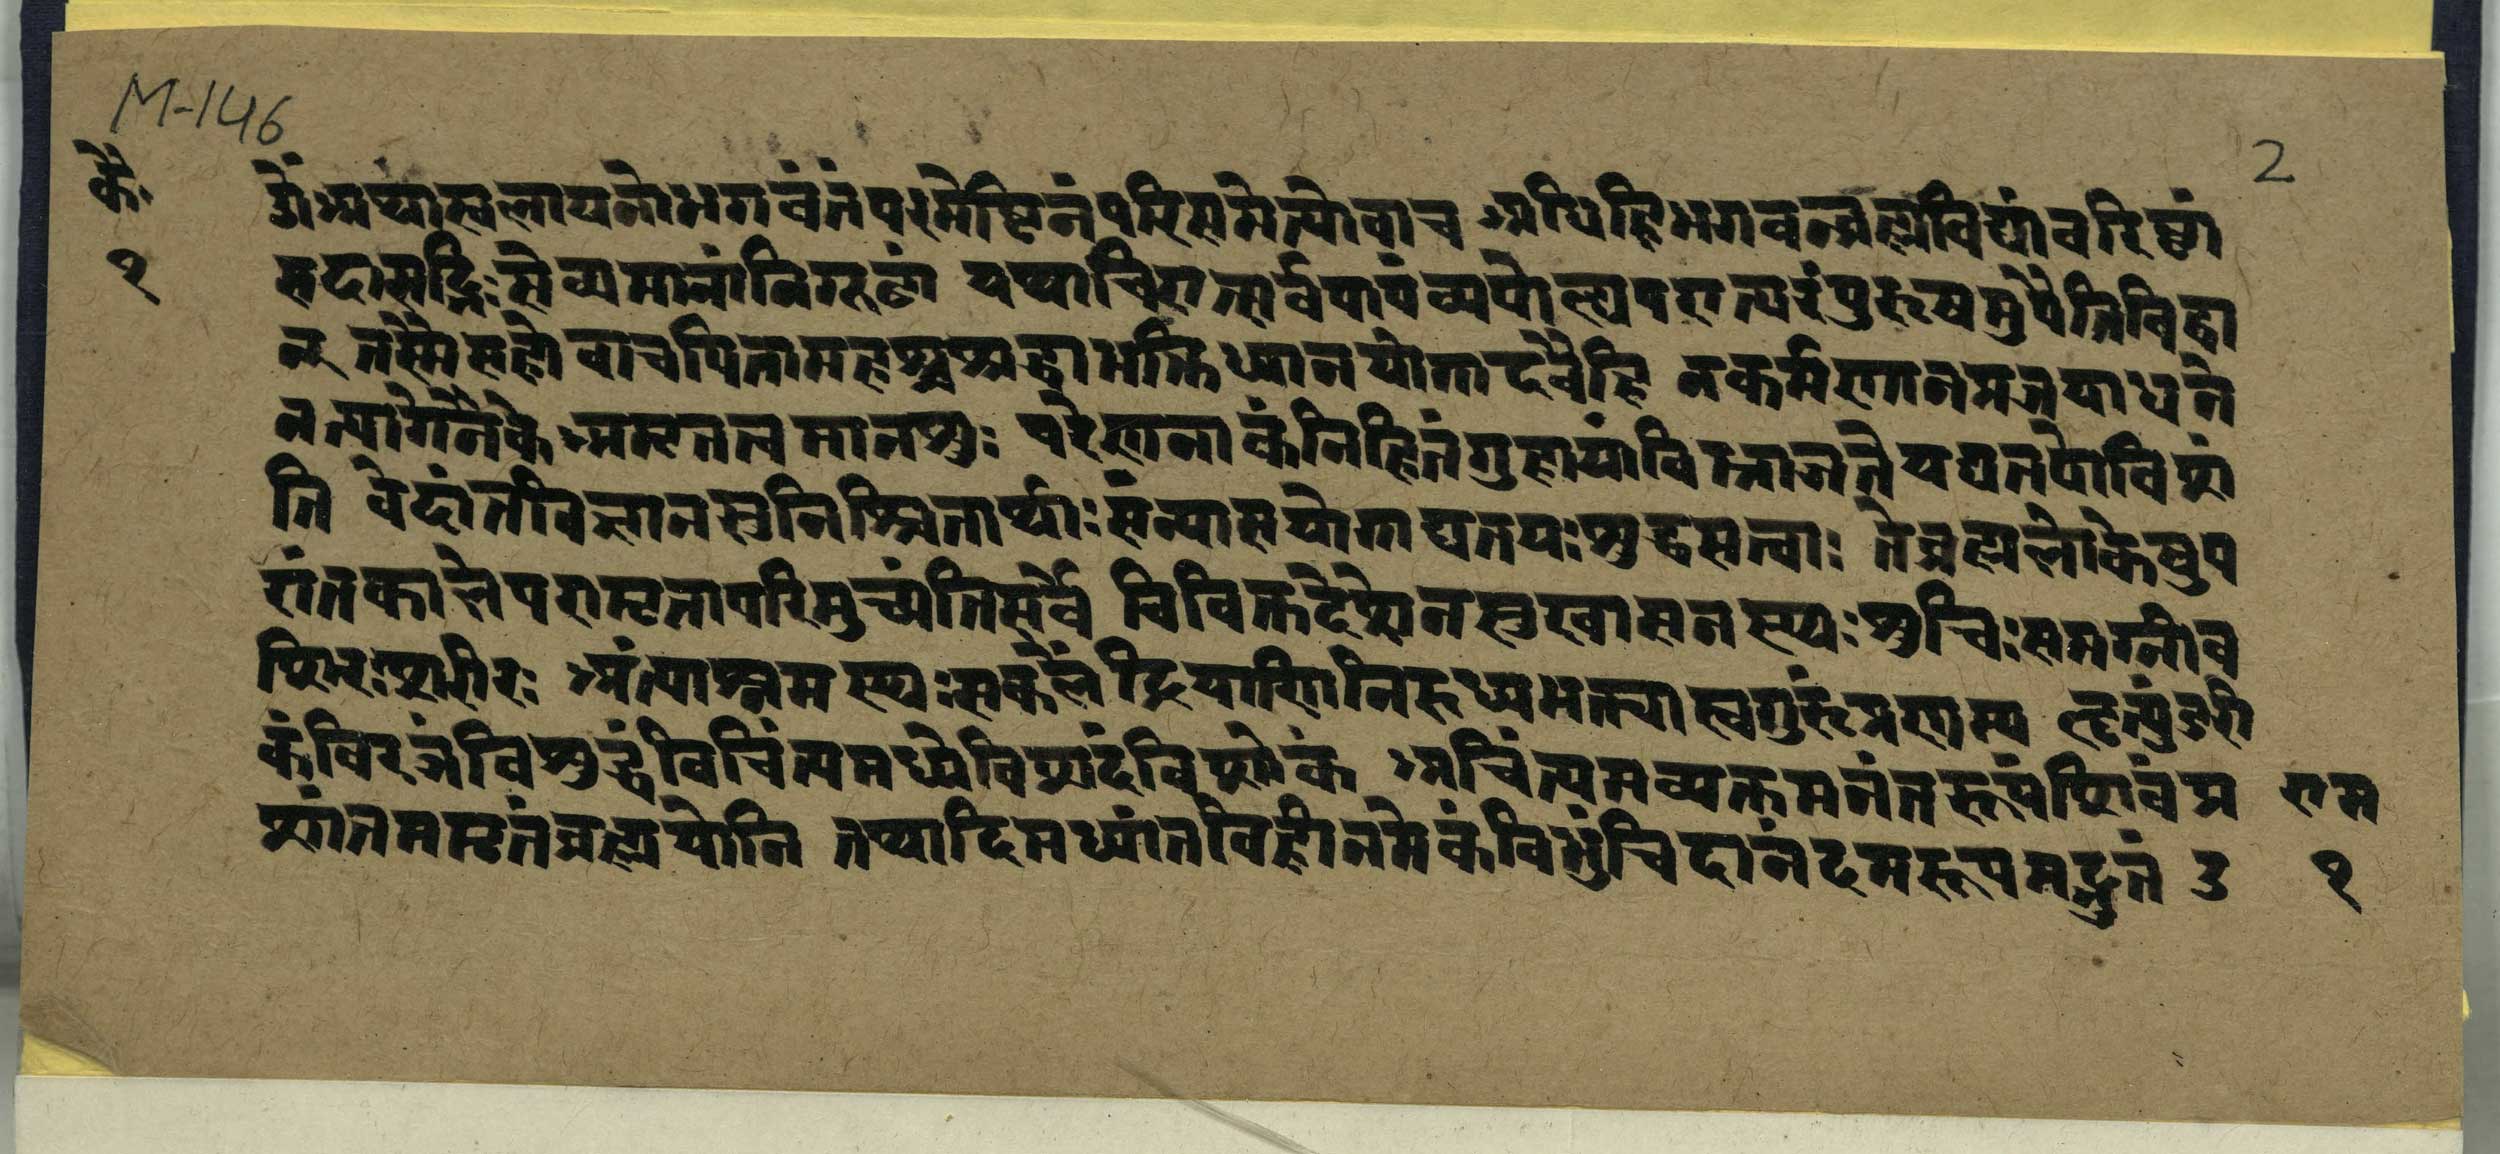 M-146
2
कै॰
१
ॐअथाश्वलायनोभगवंतंपरमेष्टिनंपरिसमेत्योवाच अधिहिभगवन्ब्रह्मविद्यांवरिष्ठां
सदासद्भिःसेव्यमानांनिगूढां यथाचिरात्सर्वपापंव्यपोह्यपरात्परंपुरुषमुपैतिविद्वा
न् तस्मैसहोवाचपितामहश्चश्रद्धाभक्तिध्यानयोगादवैहि नकर्मणानप्रजयाधने
नत्यागेनैके अमृतत्वमानशुः परेणनाकंनिहितंगुहायांविभ्राजतेयद्यतयोविशं
ति वेदांतविज्ञानसुनिश्चितार्थाः संन्यासयोगाद्यतयःशुद्धसत्वाः तेब्रह्मलोकेषुप
रांतकालेपरामृतापरिमुच्यंतिसर्वे विविक्तदेशेनसुखासनस्थःशुचिःसमग्रीव
शिरःशरीरः अंत्याश्रमस्थःसकलेंद्रियाणिनिरुध्यभक्त्यास्वगुरुंप्रणम्य हृत्पुंडरी
कंविरजंविशुद्धंविचिंत्यमध्येविशदंविशोकं अचिंत्यमव्यक्तमनंतरूपंशिवंप्र
शांतममृतंब्रह्मयोनि तथादिमध्यांतविहीनमेकंविभुंचिदानंदमरूपमद्भुतं उ
राम
१